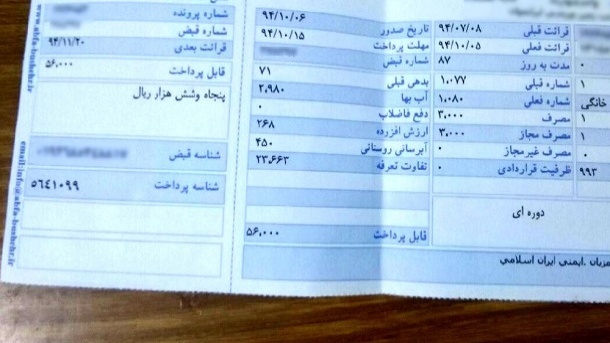 قرائت قبلی ۹۴/۰۷/۰۸
قرائت فعلی ۹۴/۱۰/۰۵
مدت به روز ۸۷
شماره قبلی ۱،۰۷۷
شماره فعلی ۱،۰۸۰
مصرف ۳،۰۰۰
مصرف مجاز ۳،۰۰۰
مصرف غیرمجاز ۰
ظرفیت قراردادی ۰
۰
۱
خانگی
۱
۰
۹۹۳
دوره ای
تاریخ صدور ۹۴/۱۰/۰۶
مهلت پرداخت ۹۴/۱۰/۱۵
شماره قبض
بدهی قبلی ۷۱
آب بها ۲،۹۸۰
دفع فاضلاب ۰
ارزش افزوده ۲۶۸
آبرسانی روستائی ۴۵۰
تفاوت تعرفه ۲۳،۶۶۳
قابل پرداخت ۵۶،۰۰۰
ایمنی ایران اسلامی
شماره پرونده
شماره قبض
قرائت بعدی ۹۴/۱۱/۲۰
قابل پرداخت ۵۶،۰۰۰
پنجاه وشش هزار ریال
شناسه قبض
شناسه پرداخت ۵۶۴۱۰۹۹
www.abfa-bushehr.ir
email:info@abfa-bushehr.ir